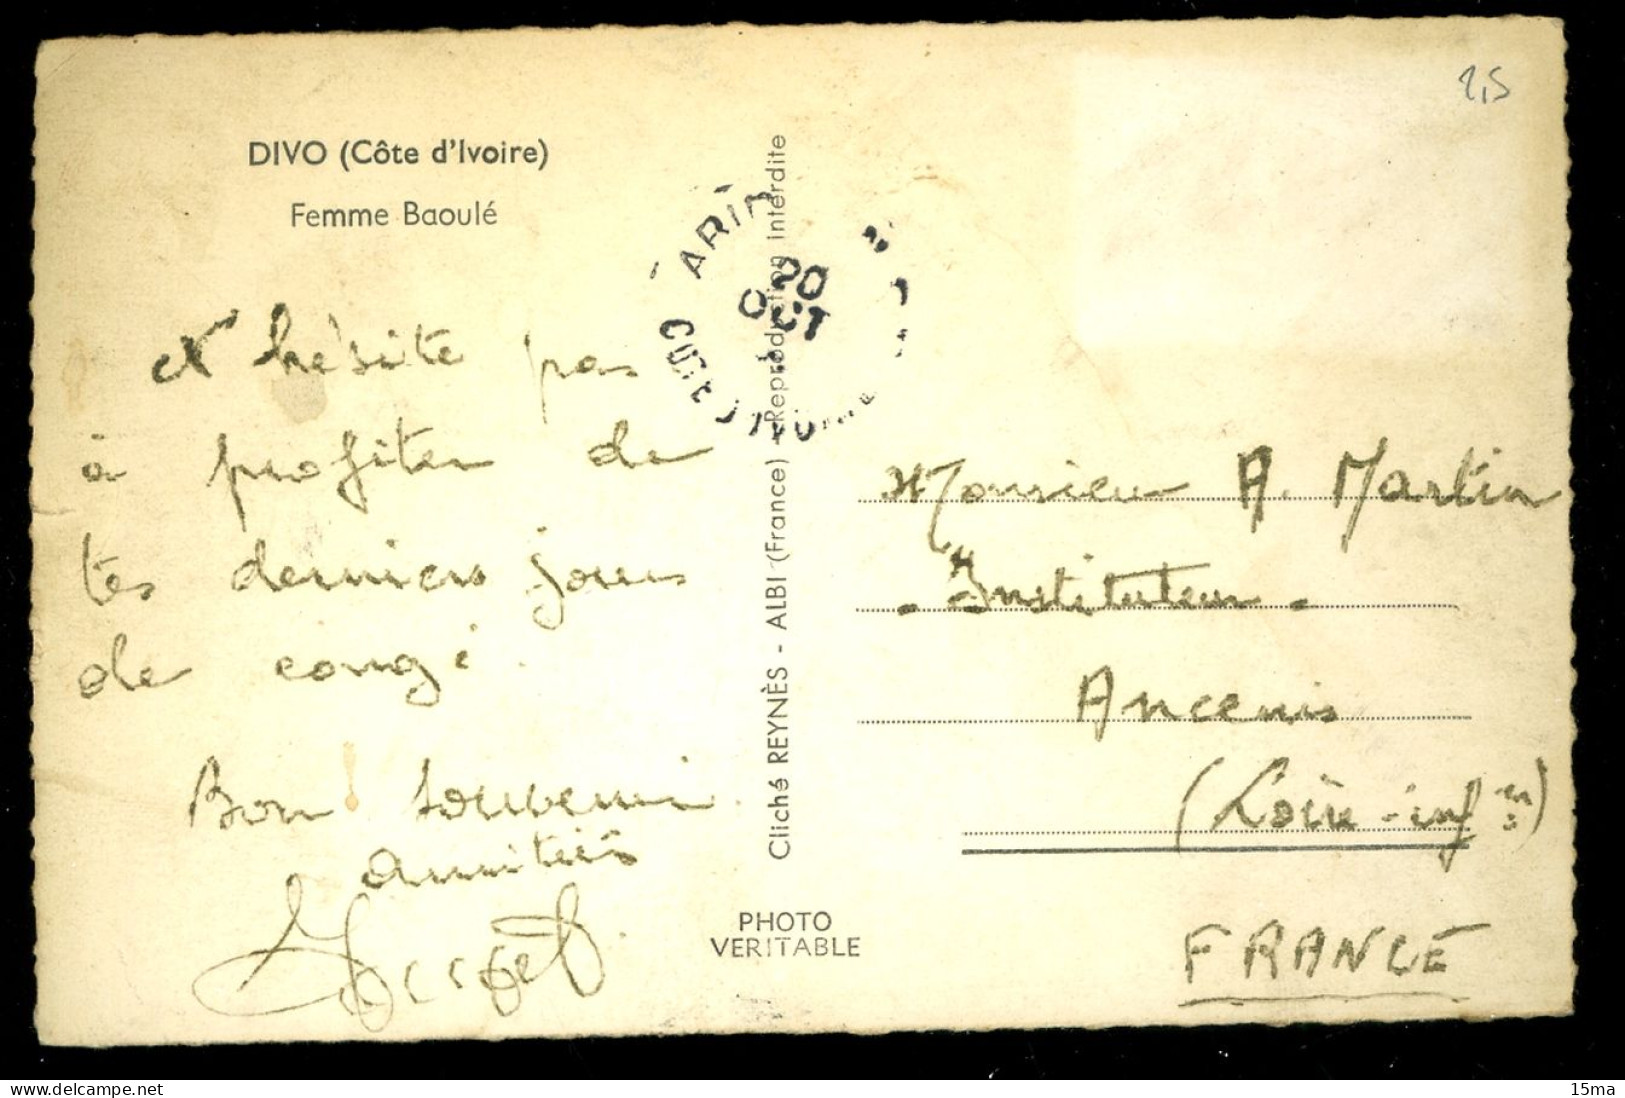 2,5
DIVO (Côte d'Ivoire)
Femme Baoulé
20
OCT
N'hésite pas
à profiter de
tes derniers jours
de congé.
Bon souvenir
amitiés
Cliché REYNÈS - ALBI (France) Reproduction Interdite
PHOTO
VERITABLE
Monsieur A. Martin
- Instituteur -
Ancenis
(Loire-infre)
FRANCE
delcampe.net
15ma